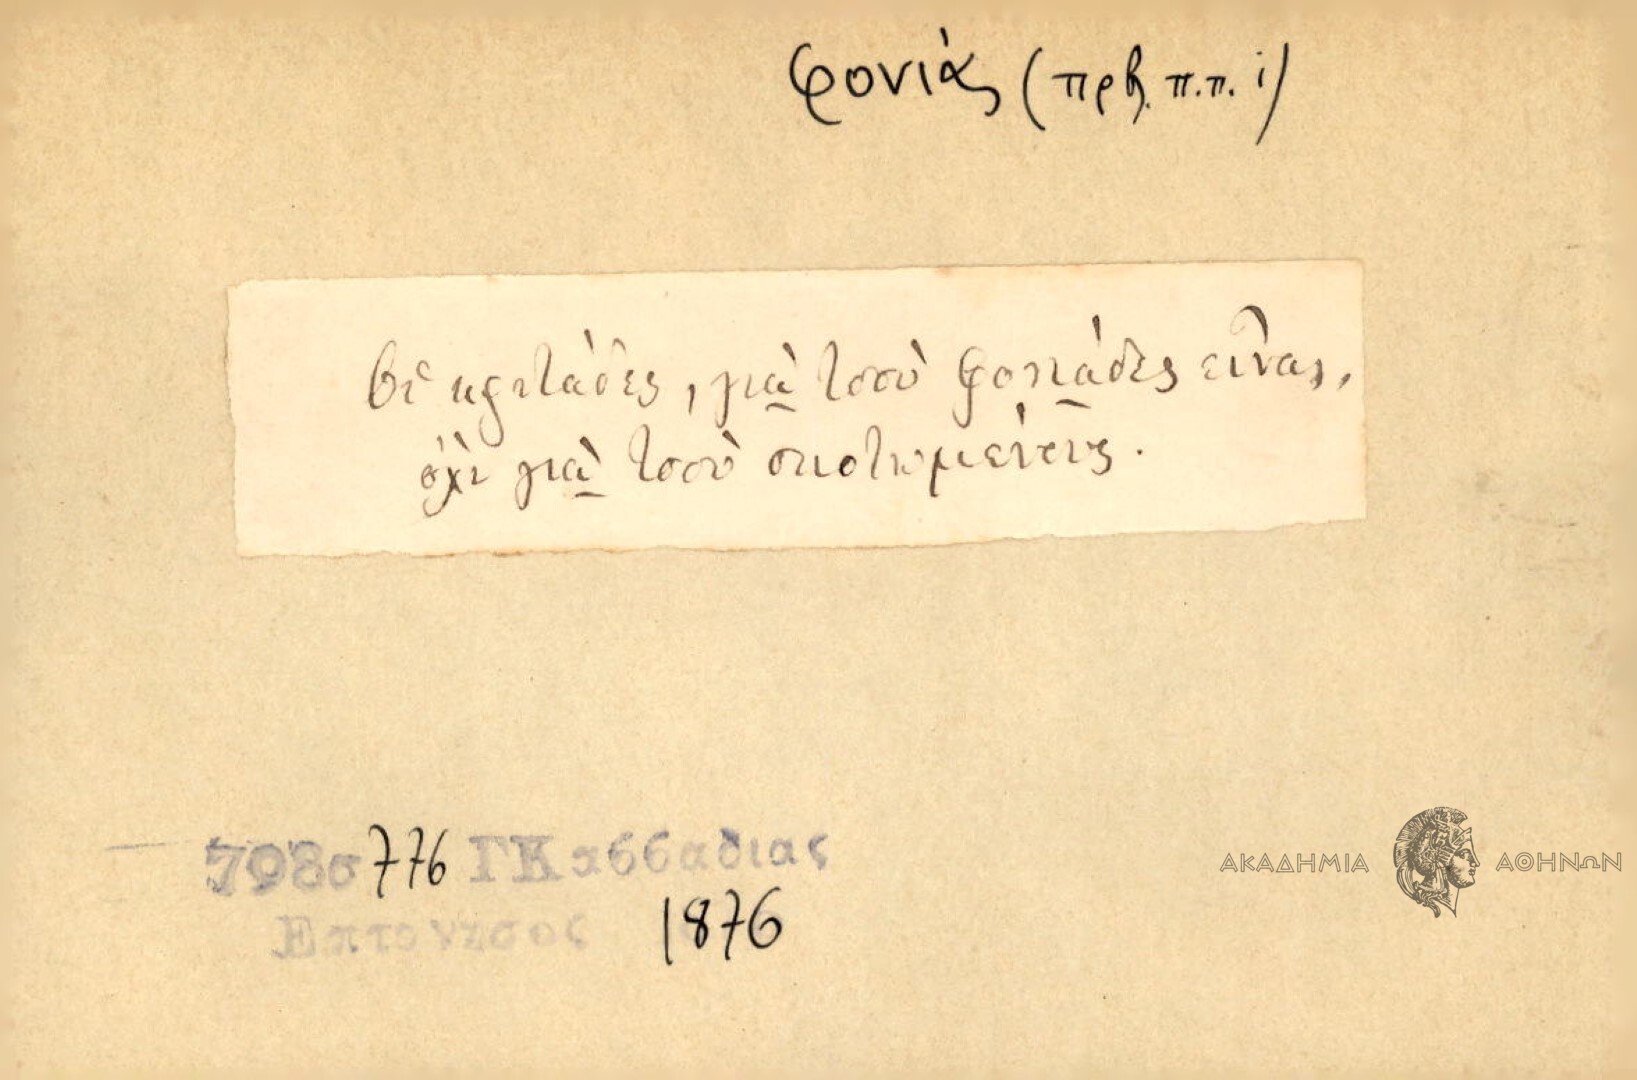 φονιὰς (πρβ. π.π. ί)
οἱ κριτάδες, γιὰ τσοὺ φονιάδες εἶναι,
ὄχι γιὰ τσοὺ σκοτωμένους.
798σ 776 ΓΚαββαδιας
Επτανησος 1876
ΑΚΑΔΗΜΙΑ ΑΘΗΝΩΝ